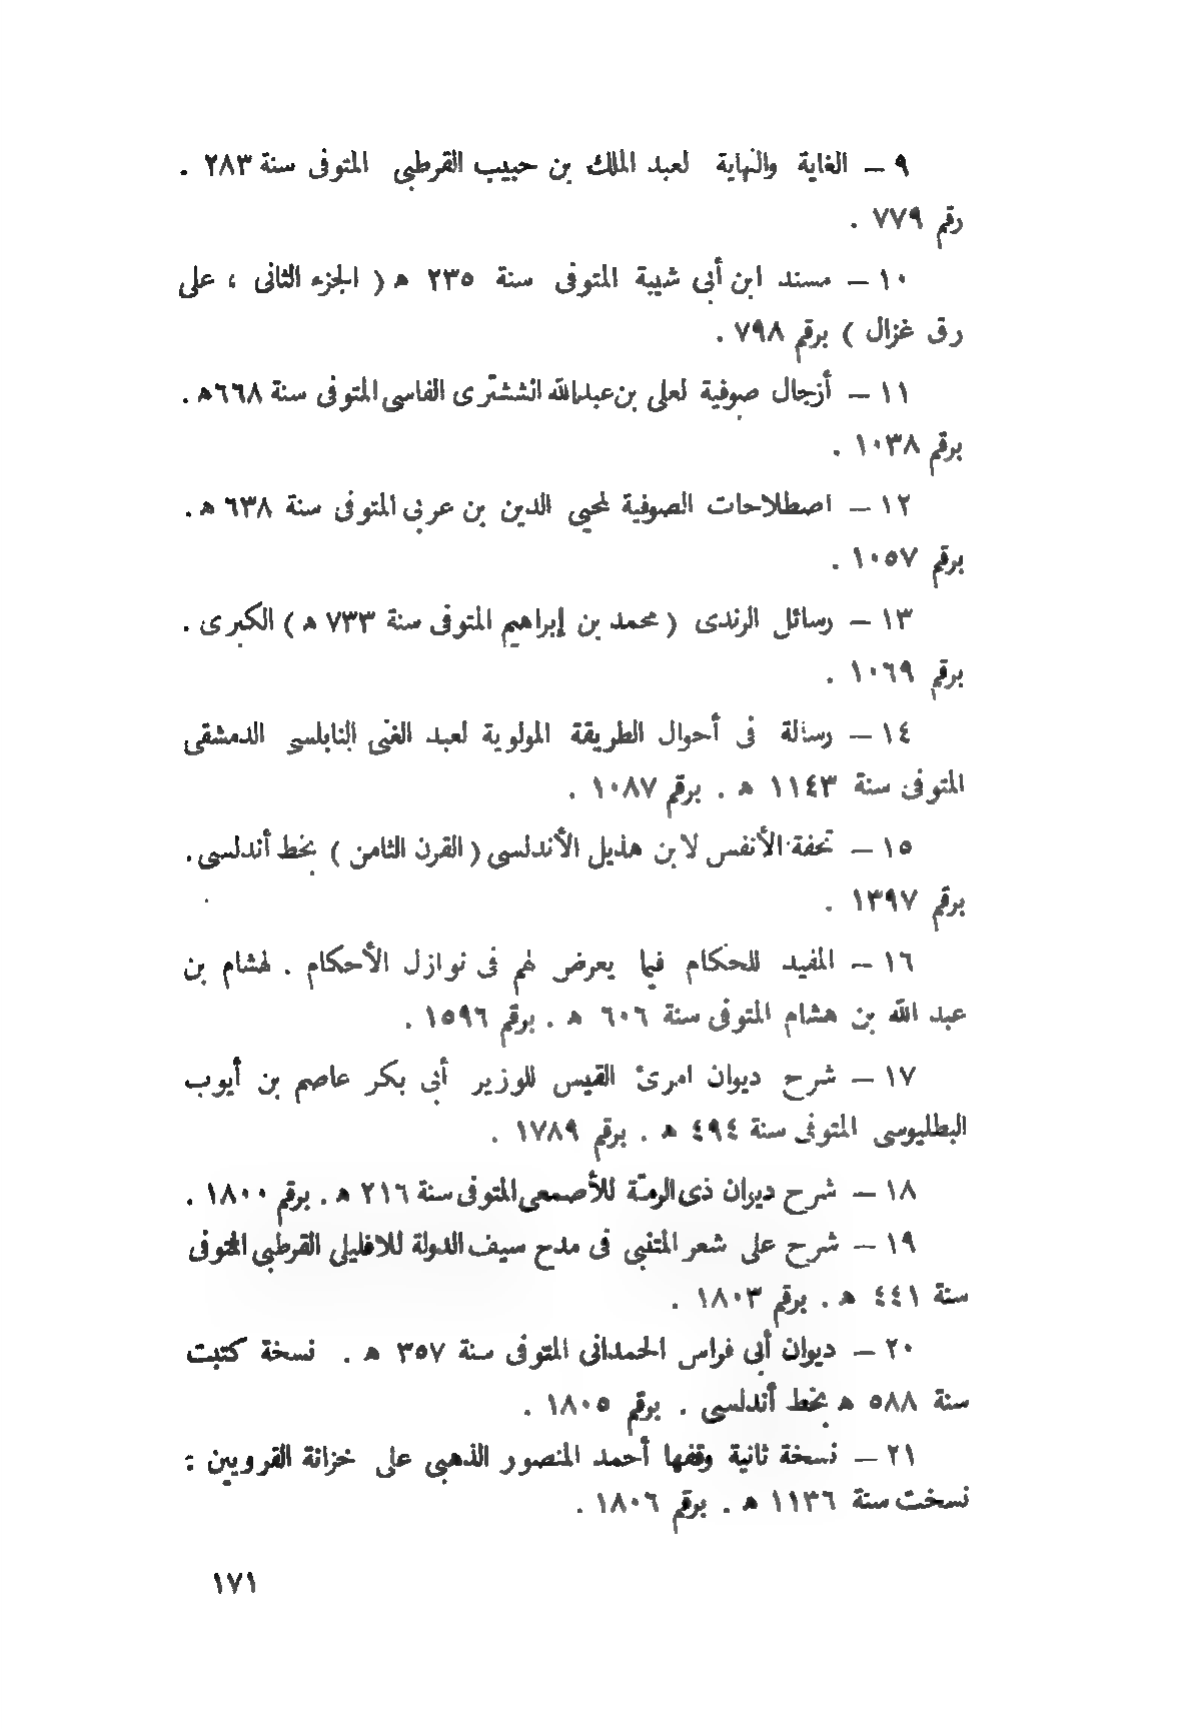 ٩ — الغاية والنهاية لعبد الملك بن حبيب القرطبى المتوفى سنة ٢٨٣ .
رقم ٧٧٩ .
١٠ — مسند ابن أبى شيبة المتوفى سنة ٢٣٥ ه ( الجزء الثانى ، على
رق غزال ) برقم ٧٩٨ .
١١ — أزجال صوفية لعلى بن عبدالله الششترى الفاسى المتوفى سنة ٦٦٨ه .
برقم ١٠٣٨ .
١٢ — اصطلاحات الصوفية لمحيى الدين بن عربى المتوفى سنة ٦٣٨ ه .
برقم ١٠٥٧ .
١٣ — رسائل الرندى ( محمد بن إبراهيم المتوفى سنة ٧٣٣ ه ) الكبرى .
برقم ١٠٦٩ .
١٤ — رسالة فى أحوال الطريقة المولوية لعبد الغنى النابلسى الدمشقى
المتوفى سنة ١١٤٣ ه . برقم ١٠٨٧ .
١٥ — تحفة الأنفس لابن هذيل الأندلسى ( القرن الثامن ) بخط أندلسى .
برقم ١٣٩٧ .
١٦ — المفيد للحكام فيما يعرض لهم فى نوازل الأحكام . لهشام بن
عبد الله بن هشام المتوفى سنة ٦٠٦ ه . برقم ١٥٩٦ .
١٧ — شرح ديوان امرئ القيس للوزير أبى بكر عاصم بن أيوب
البطليوسى المتوفى سنة ٤٩٤ ه . برقم ١٧٨٩ .
١٨ — شرح ديران ذى الرمّة للأصمعى المتوفى سنة ٢١٦ ه . برقم ١٨٠٠ .
١٩ — شرح على شعر المتنبى فى مدح سيف الدولة للافليلى القرطبى المتوفى
سنة ٤٤١ ه . برقم ١٨٠٣ .
٢٠ — ديوان أبى فراس الحمدانى المتوفى سنة ٣٥٧ ه . نسخة كتبت
سنة ٥٨٨ ه بخط أندلسى . برقم ١٨٠٥ .
٢١ — نسخة ثانية وقفها أحمد المنصور الذهبى على خزانة القرويين :
نسخت سنة ١١٣٦ ه . برقم ١٨٠٦ .
١٧١